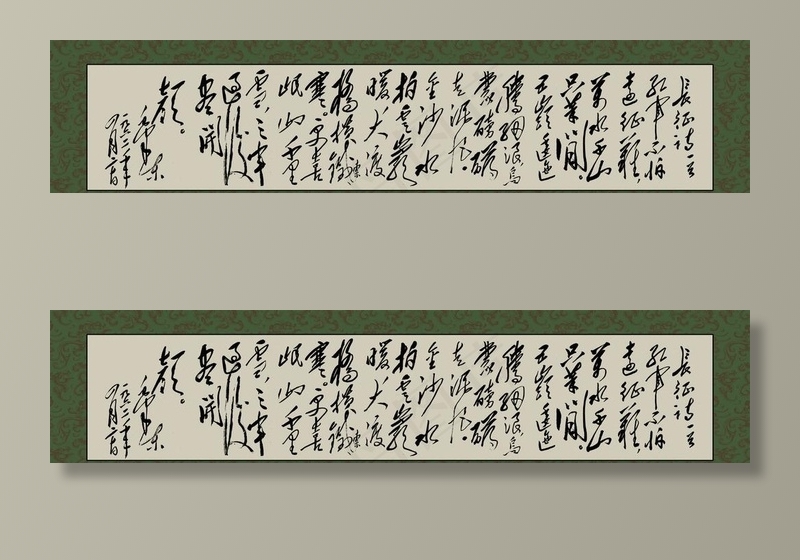 長征詩一首
紅軍不怕
遠征難,
萬水千山
只等閒。
五嶺逶迤
騰細浪烏
蒙磅礴
走泥丸。
金沙水
拍雲巖
暖大渡
橋橫鐵索
寒。更喜
岷山千里
雪,三軍
過後
盡開
顏。
毛澤東
一九六二年
長征詩一首
紅軍不怕
遠征難,
萬水千山
只等閒。
五嶺逶迤
騰細浪烏
蒙磅礴
走泥丸。
金沙水
拍雲巖
暖大渡
橋橫鐵索
寒。更喜
岷山千里
雪,三軍
過後
盡開
顏。
毛澤東
一九六二年